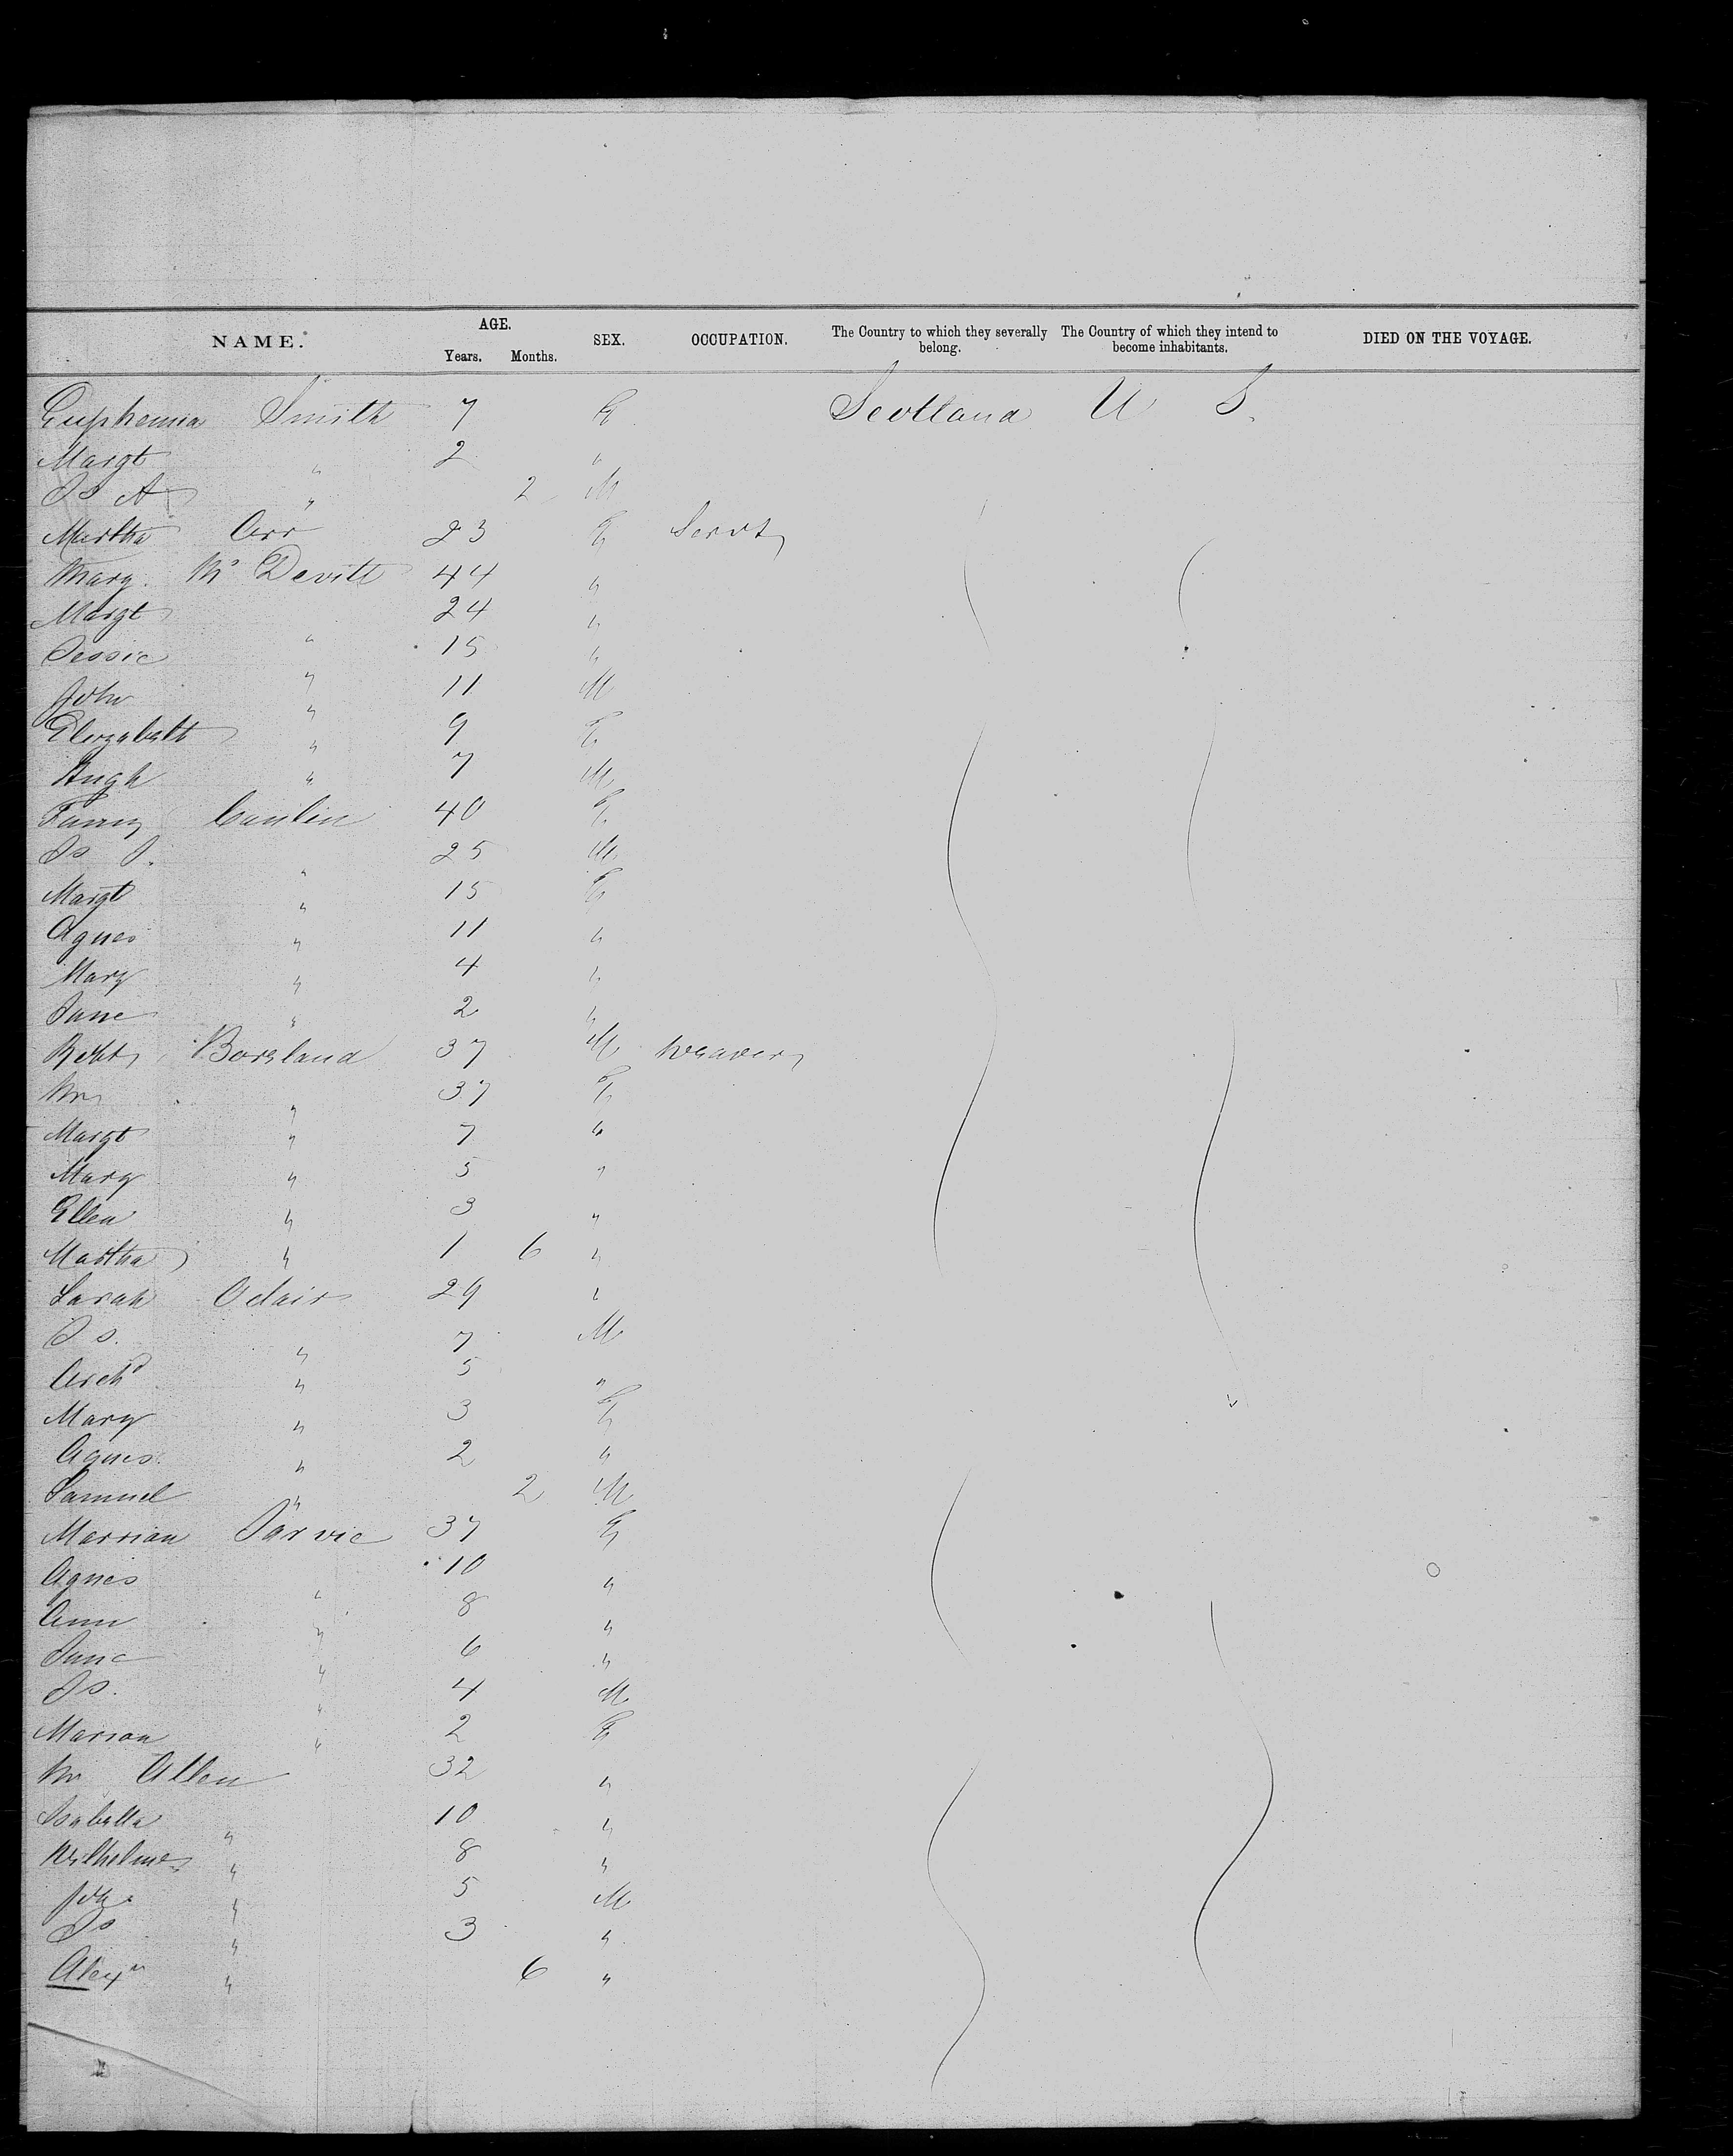 NAME. AGE. Years. Months. SEX. OCCUPATION. The Country to which they severally belong. The Country of which they intend to become inhabitants. DIED ON THE VOYAGE.
Euphemia Smith 7 F Scotland U S.
Margt " 2 "
Js A " 2 M
Martha Orr 23 F Servt
Mary Mc Devitt 44 "
Margt " 24 "
Jessie " 15 "
John " 11 M
Elizabeth " 9 F
Hugh " 7 M
Fanny Conlin 40 F
Js J. " 25 M
Margt " 15 F
Agnes " 11 "
Mary " 4 "
Jane " 2 "
Robt Borland 37 M Weaver
Mrs " 37 F
Margt " 7 "
Mary " 5 "
Ellen " 3 "
Martha " 1 6 "
Sarah Adair 29 "
Js. " 7 M
Archd " 5 "
Mary " 3 F
Agnes " 2 "
Samuel " 2 M
Marrian Jarvie 37 F
Agnes " 10 "
Ann " 8 "
Jane " 6 "
Js. " 4 M
Marion " 2 F
Mrs Allen 32 "
Isabella " 10 "
Wilhelmea " 8 "
John " 5 M
Js " 3 "
Alexr " 6 "